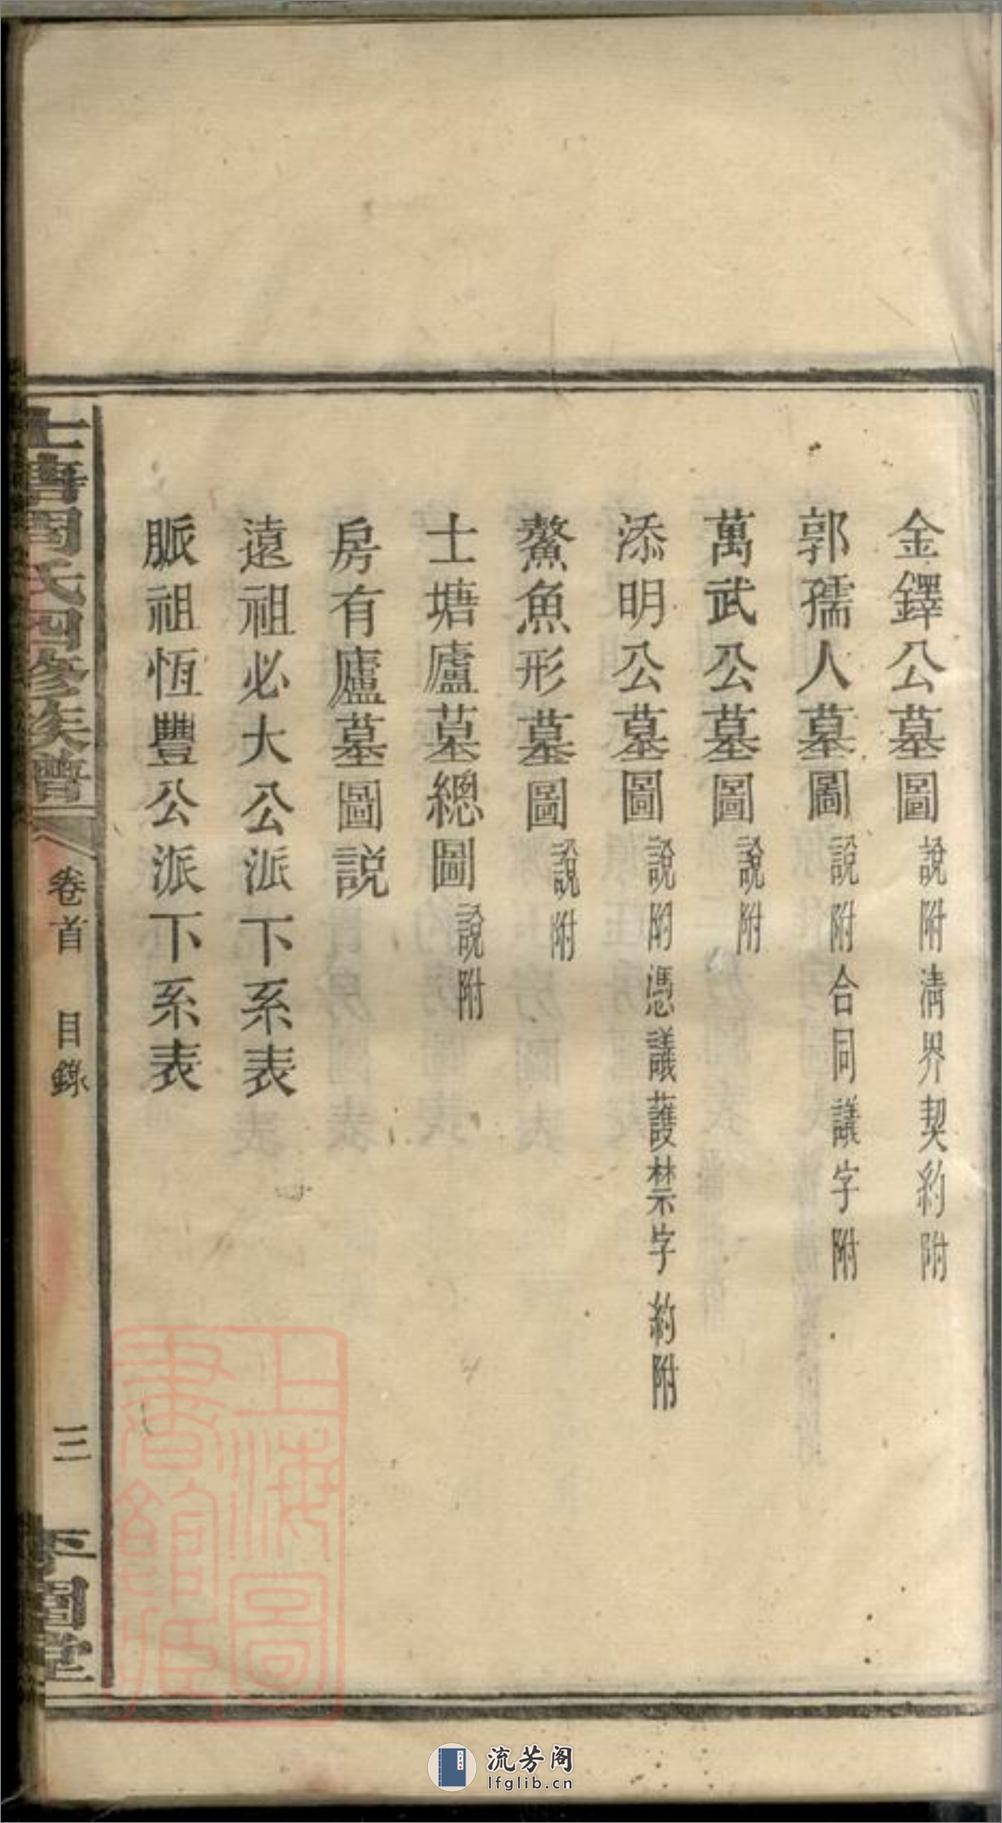 金鐸公墓圖 說附清界契約附
郭孺人墓圖 說附合同議字附
萬武公墓圖 說附
添明公墓圖 說附憑議護禁字約附
鰲魚形墓圖 說附
士塘廬墓總圖 說附
房有廬墓圖説
遠祖必大公派下系表
脈祖恆豐公派下系表
士塘周氏四修族譜 卷首 目錄 三
上海圖書館藏
流芳阁
lfglib.cn